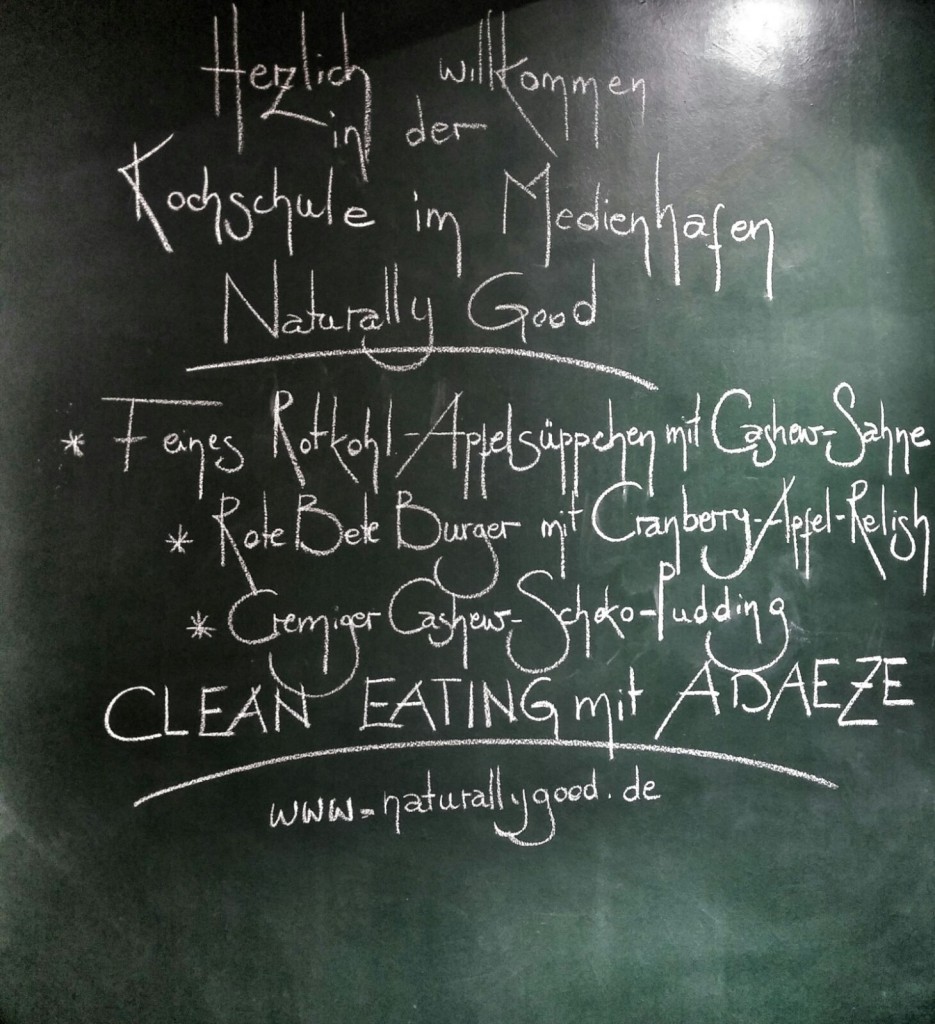 Herzlich willkommen
in der
Kochschule im Medienhafen
Naturally Good
* Feines Rotkohl-Apfelsüppchen mit Cashew-Sahne
* Rote Bete Burger mit Cranberry-Apfel-Relish
* Cremiger Cashew-Schoko-Pudding
CLEAN EATING mit ADAEZE
www.naturallygood.de